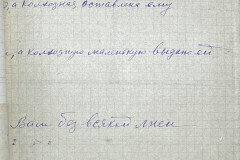 а колхозная оставлена ему
а колхозную маленькую выдано ей
Вам без всякой лжи